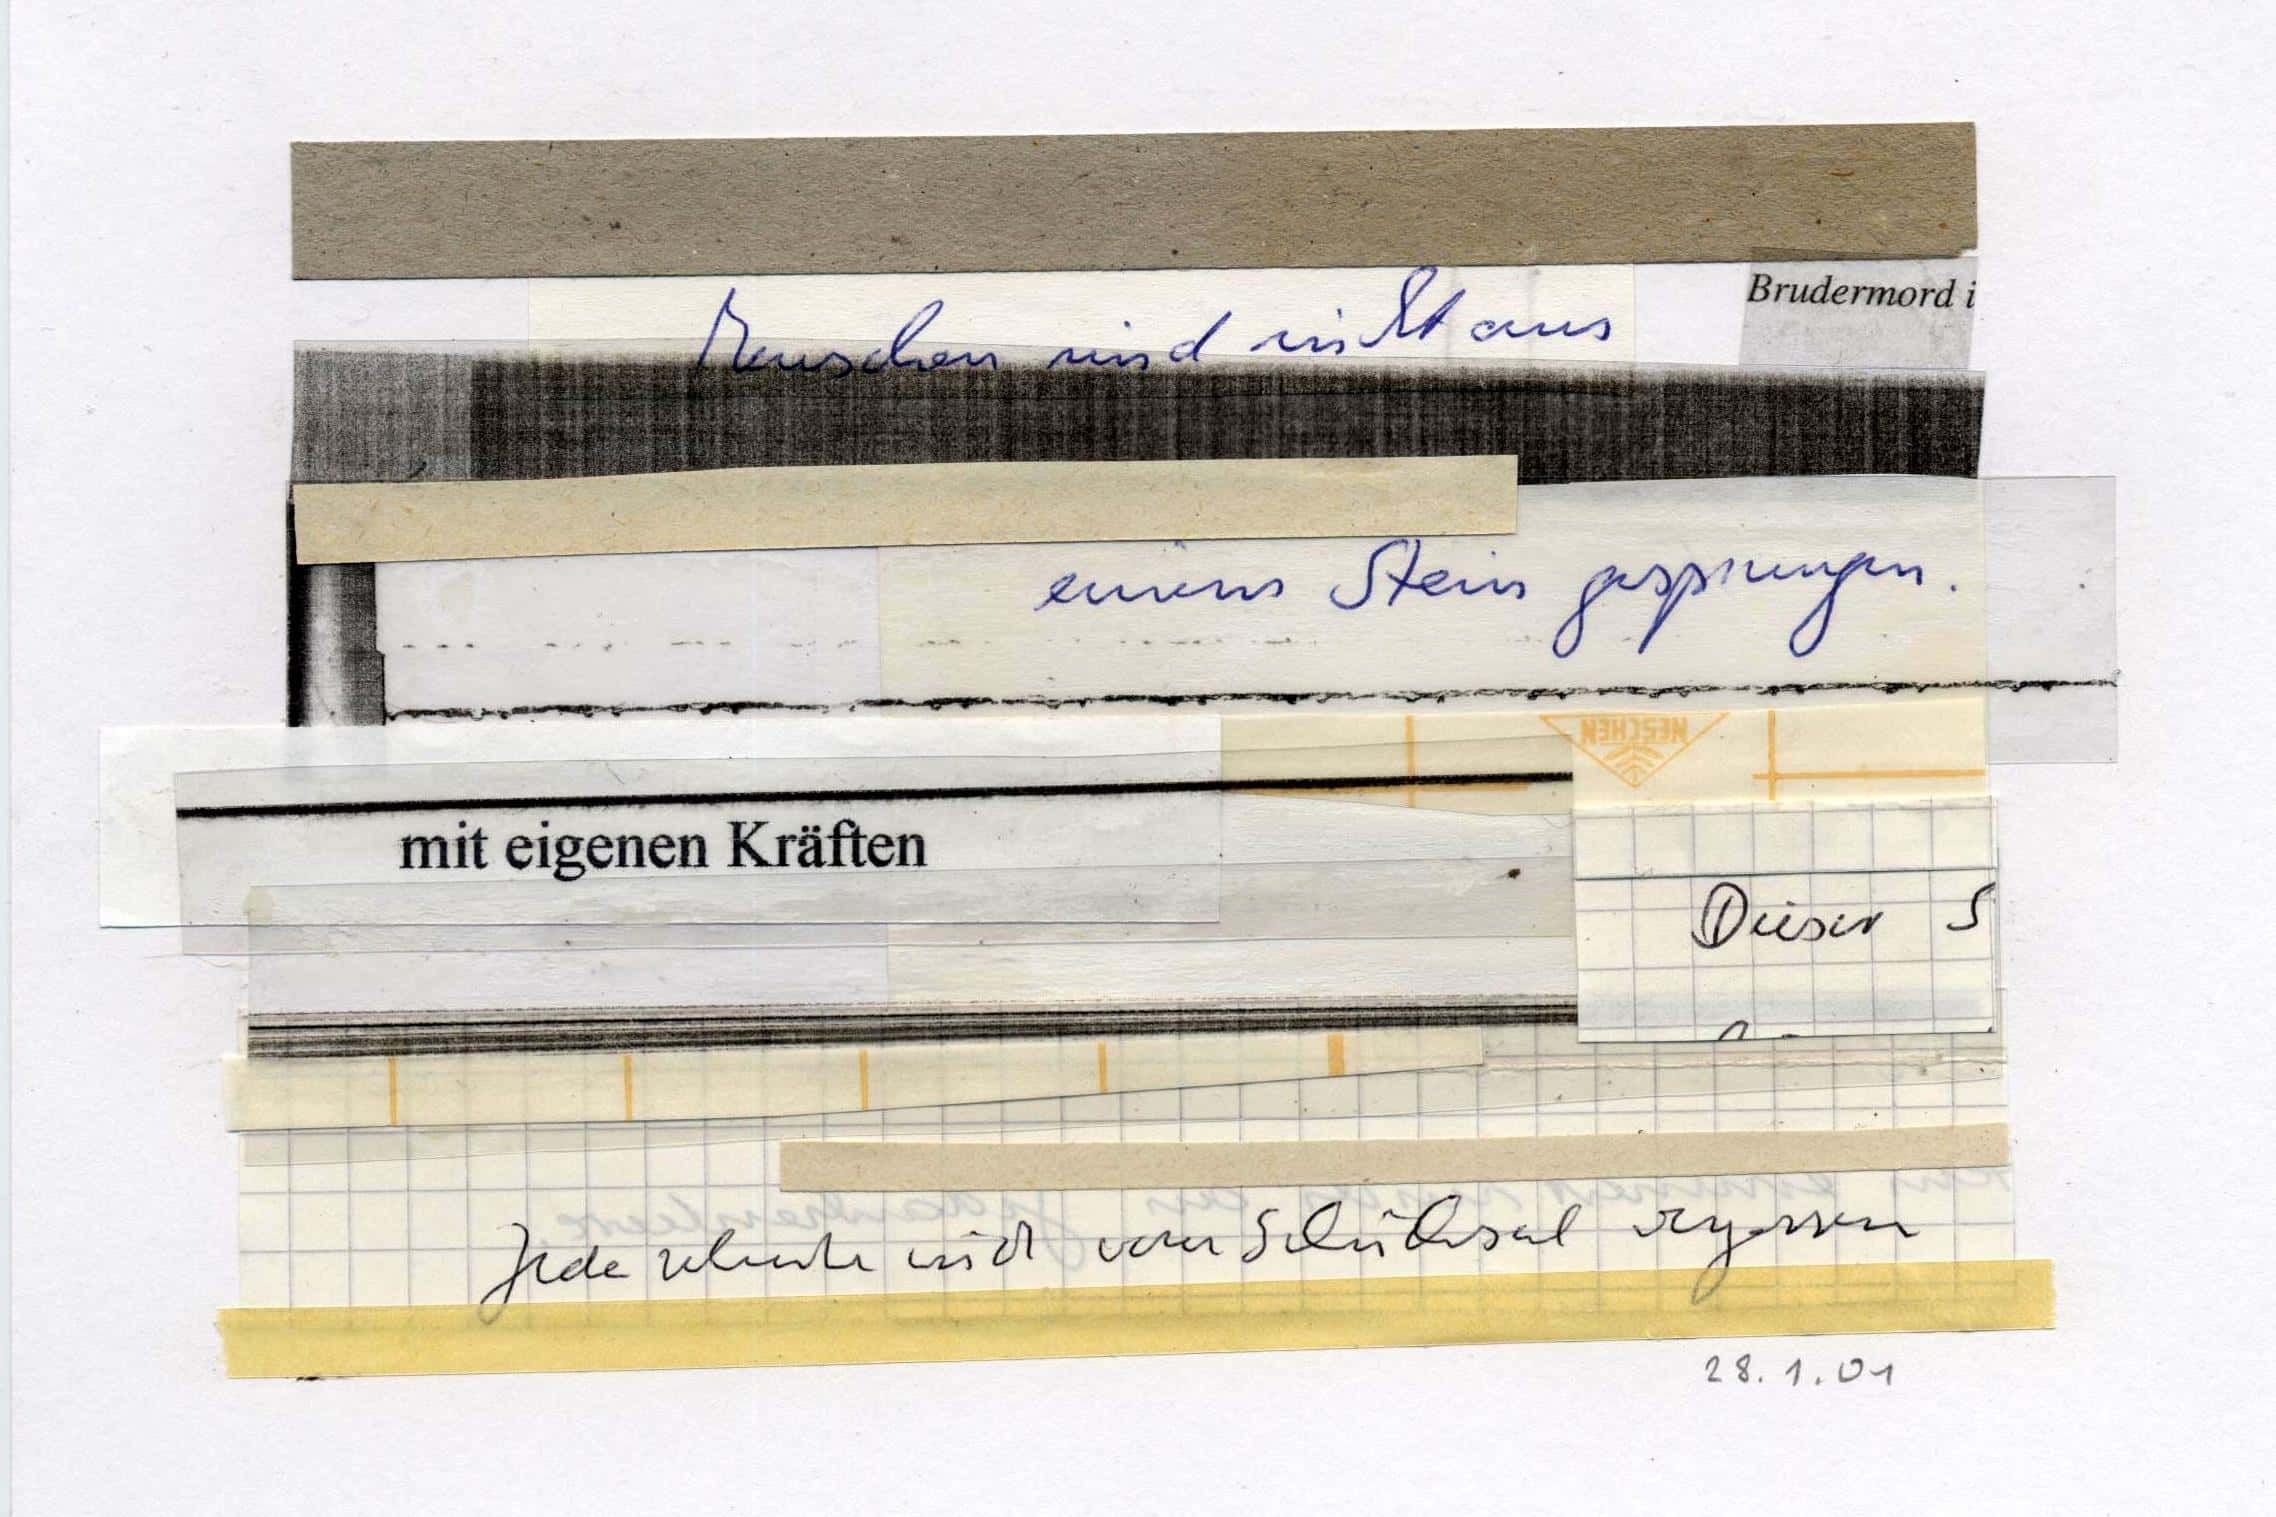 Brudermord i
Menschen sind nicht aus
einem Stein gesprungen.
NESCHEN
mit eigenen Kräften
Dieser S
Jede nicht vom Schicksal
28.1.01